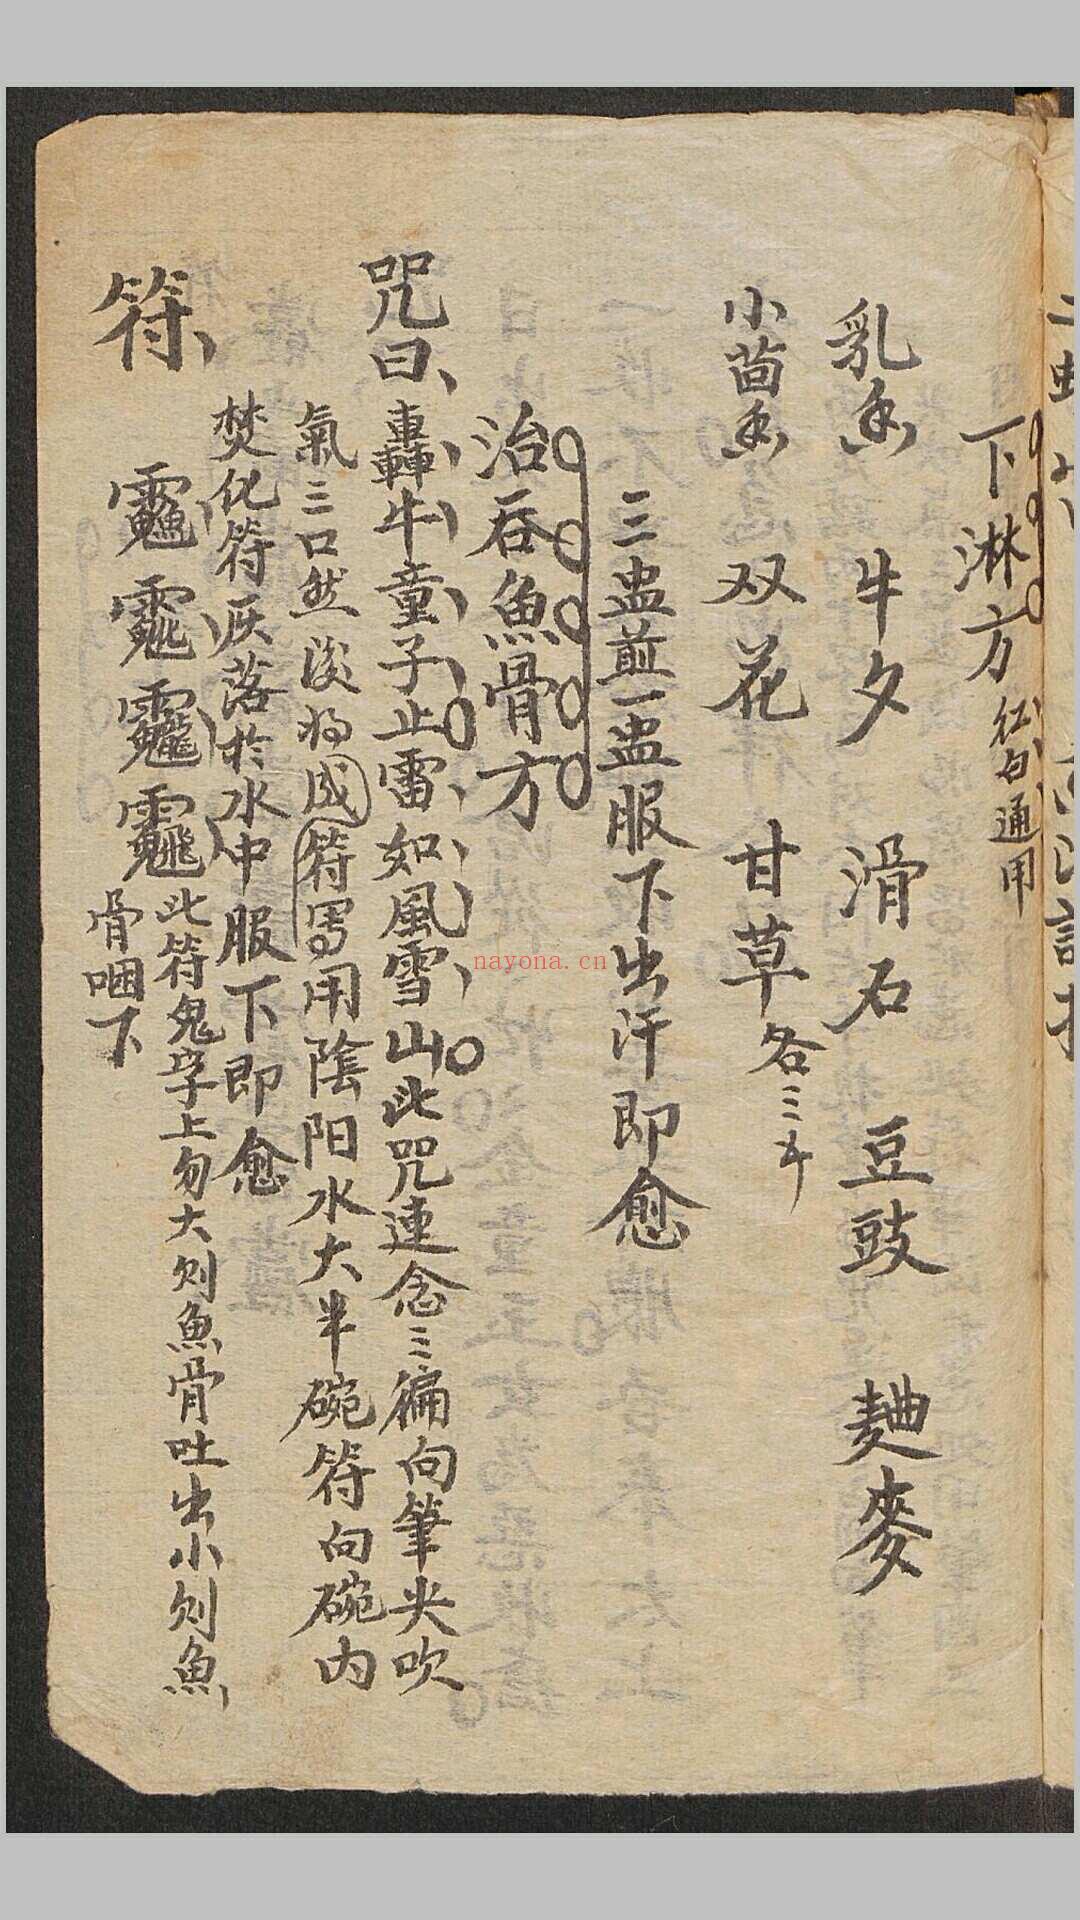 下淋方 紅白通用
乳香 牛夕 滑石 豆豉 麯麥
小茴香 双花 甘草 各三千
三盅煎一盅服下出汗即愈
治吞魚骨方
咒曰 轟牛童子止雷如風雪山此咒連念三徧向筆尖吹
氣三口然後将成符写用陰阳水大半碗符向碗内
焚化符灰落於水中服下即愈
符
此符鬼字上勿大则魚骨吐出小则魚
骨咽下
nayona.cn